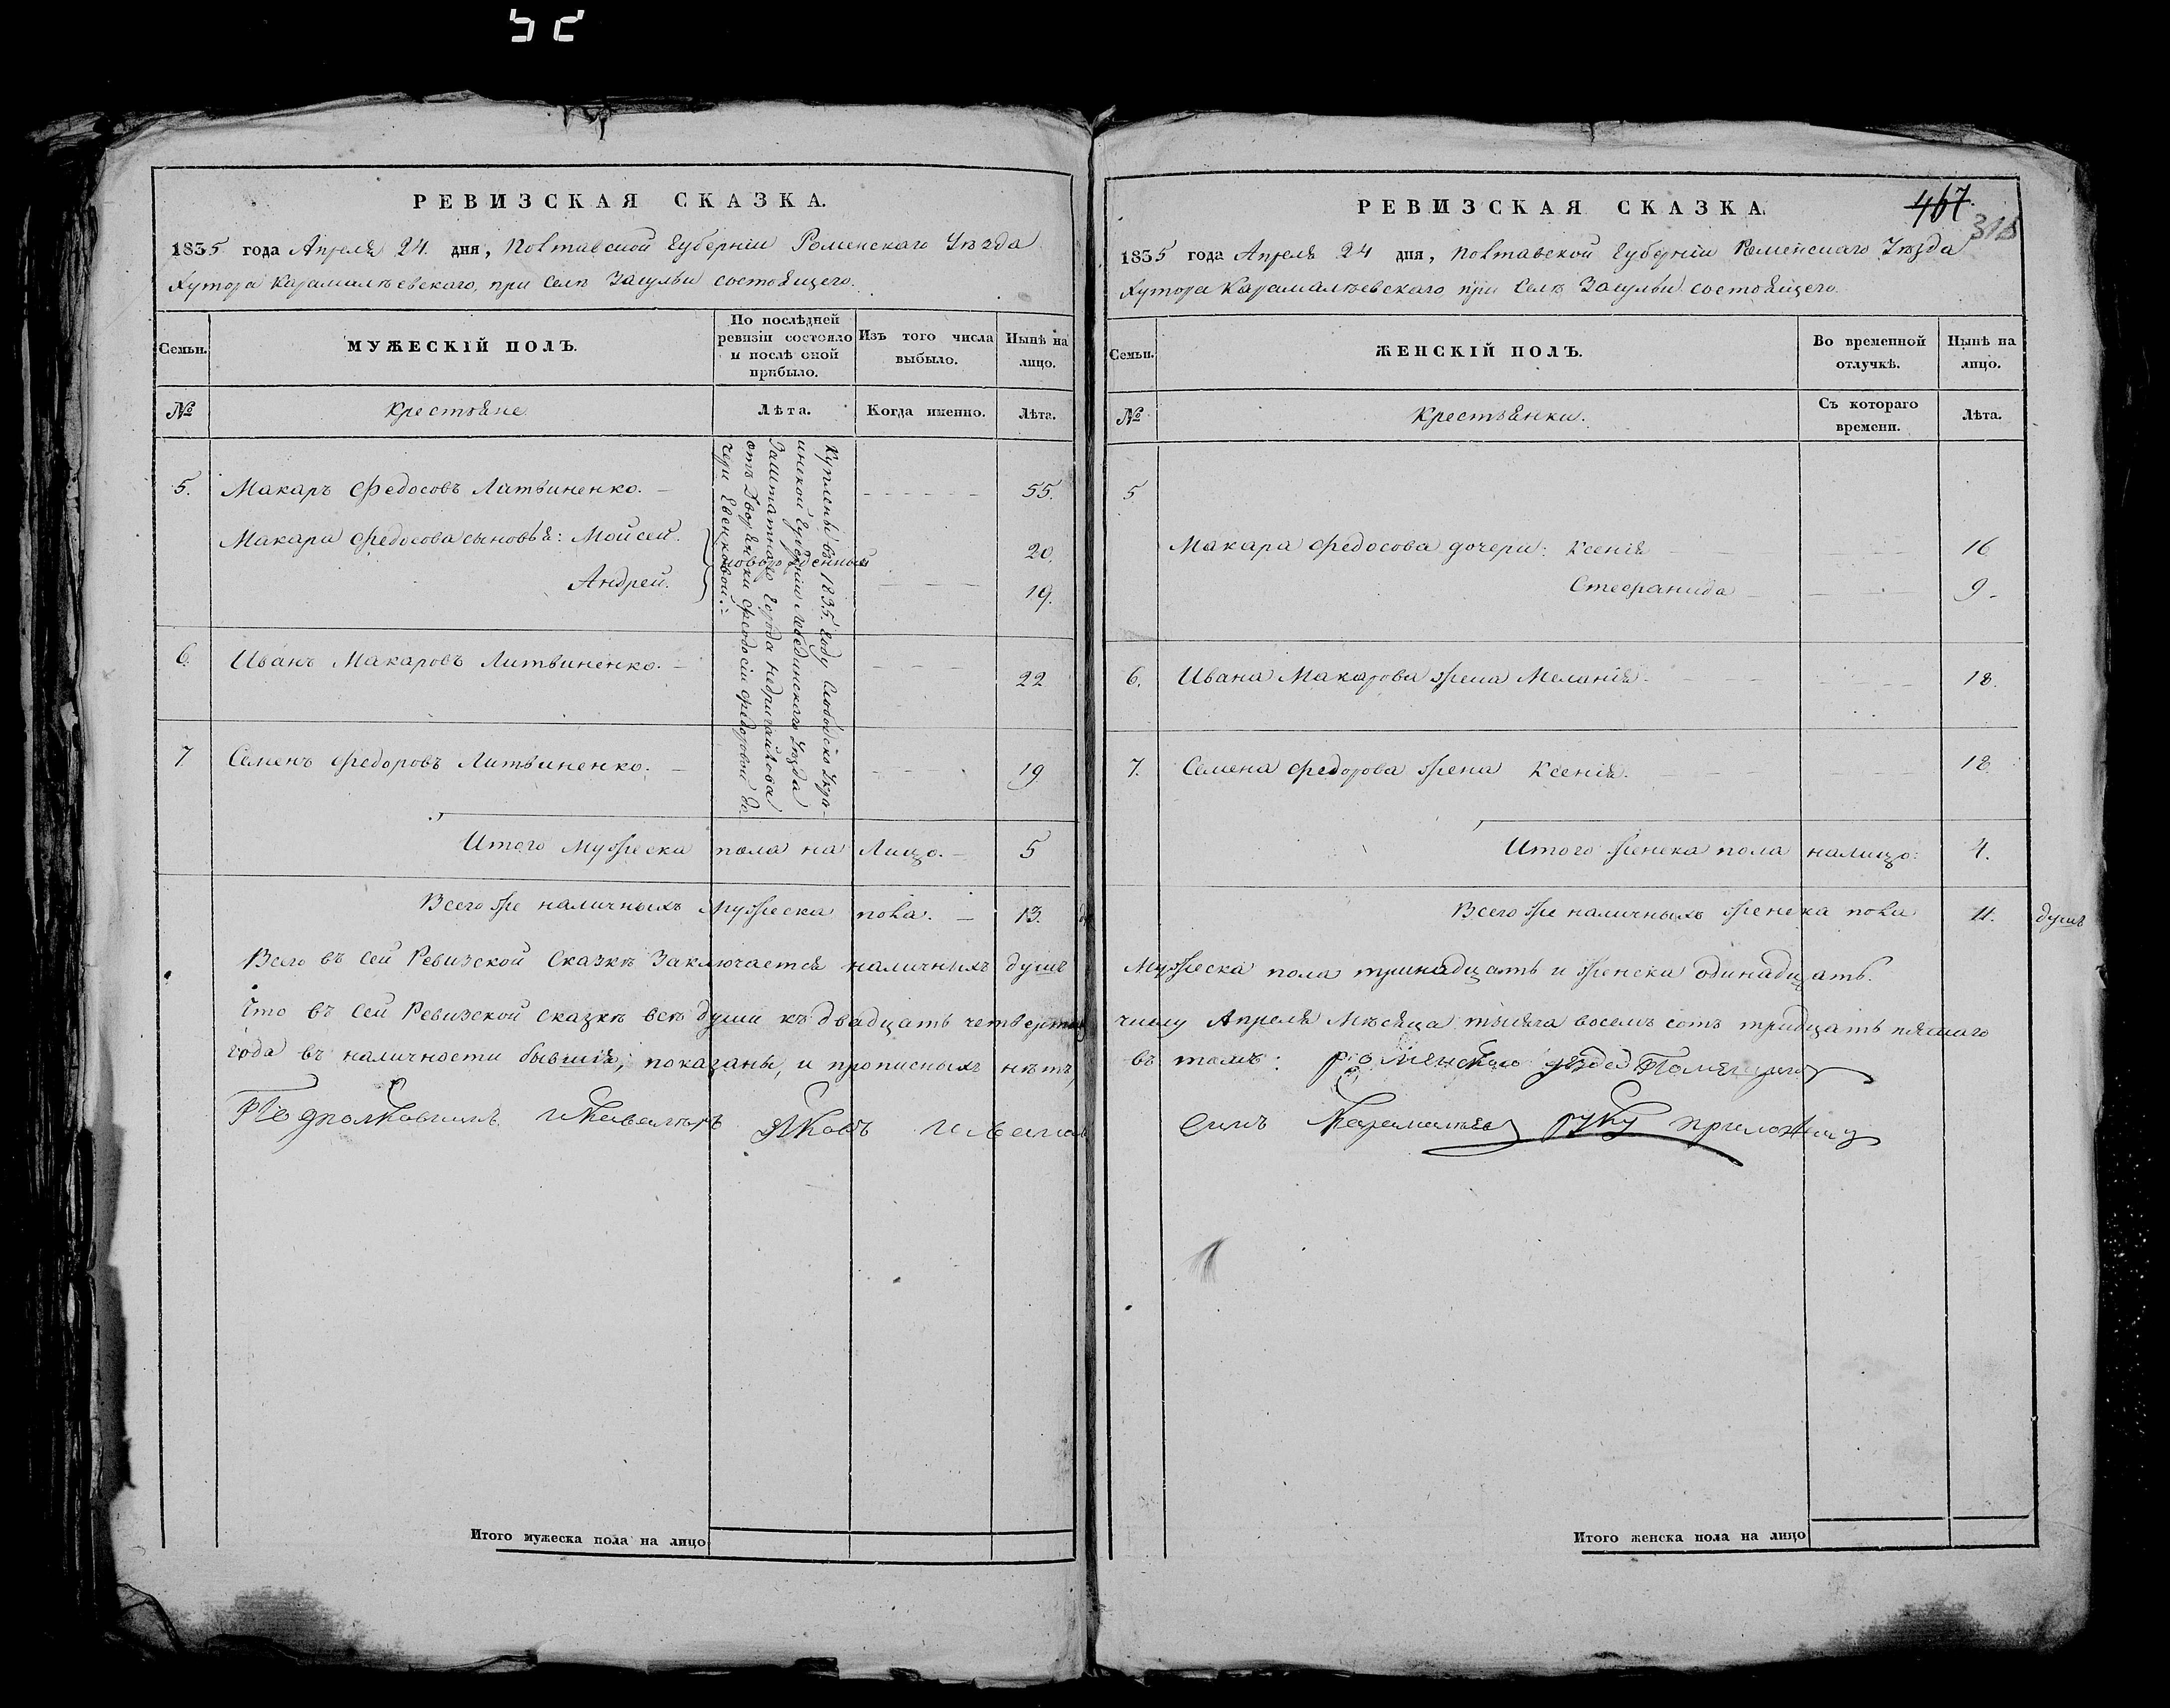 РЕВИЗСКАЯ СКАЗКА.
1835 года Апреля 24. дня, Полтавской Губерніи Роменскаго Уѣзда
Хутора Карамалѣевскаго, при Селѣ Засульи состоящего.
Семьи.
МУЖЕСКІЙ ПОЛЪ.
По послѣдней ревизіи состояло и послѣ оной прибыло.
Изъ того числа выбыло.
Нынѣ на лицо.
№
Крестьяне
Лѣта.
Когда именно.
Лѣта.
Куплены въ 1835. году Слободско Укра-
инской Губерніи Лебединского Уѣзда
Заштатного города Недригайлова
отъ Дворянки Феодосіи Федоровой до-
чери Евенковой.
5. Макаръ Федосовъ Литвиненко. 55.
Макара Федосова сыновья: Мойсей. 20.
новорожденный
Андрей. 19.
6. Иванъ Макаровъ Литвиненко. 22
7 Семенъ Федоровъ Литвиненко. 19
Итого мужеска пола на Лицо. 5
Всего же наличныхъ мужеска пола. 13.
Всего въ сей Ревизской Сказкѣ Заключается наличныхъ душъ
Что въ сей Ревизской сказкѣ всѣ души къ двадцать четвертому
года въ наличности бывшія, показаны, и прописныхъ нѣтъ,
Подполковникъ и Кавалеръ Яковъ Ивановъ
Итого мужеска пола на лицо
РЕВИЗСКАЯ СКАЗКА.
467
318
1835 года Апреля 24 дня, Полтавской Губерніи Роменскаго Уѣзда
Хутора Карамалѣевскаго при Селѣ Засульи состоящего.
Семьи.
ЖЕНСКІЙ ПОЛЪ.
Во временной отлучкѣ.
Нынѣ на лицо.
№
Крестьянки.
Съ котораго времени.
Лѣта.
5
Макара Федосова дочери: Ксенія 16
Стефанида 9
6. Ивана Макарова жена Меланія. 18.
7. Семена Федорова жена Ксенія. 18.
Итого женска пола налицо: 4.
Всего же наличныхъ женска пола 11. душъ
Мужеска пола тринадцать и женска одинадцать.
числу Апреля Мѣсяца тысяча восемъ сотъ тридцать пятаго
въ томъ: роменского уезда Помещикъ
сынъ Карамалѣев руку приложилъ
Итого женска пола на лицо